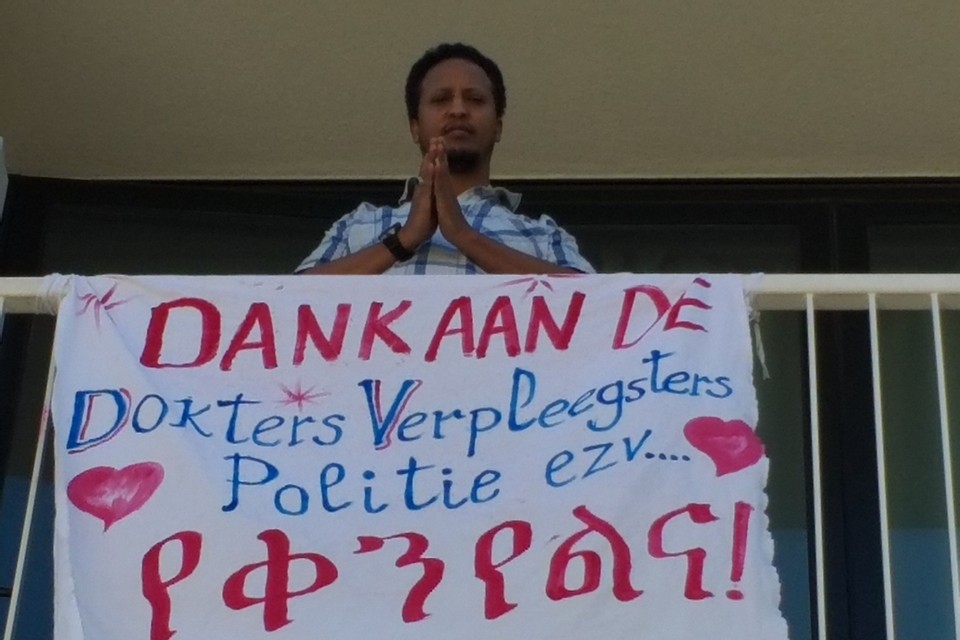 DANK AAN DE
Dokters Verpleegsters
Politie ezv....
የቀንየልና!